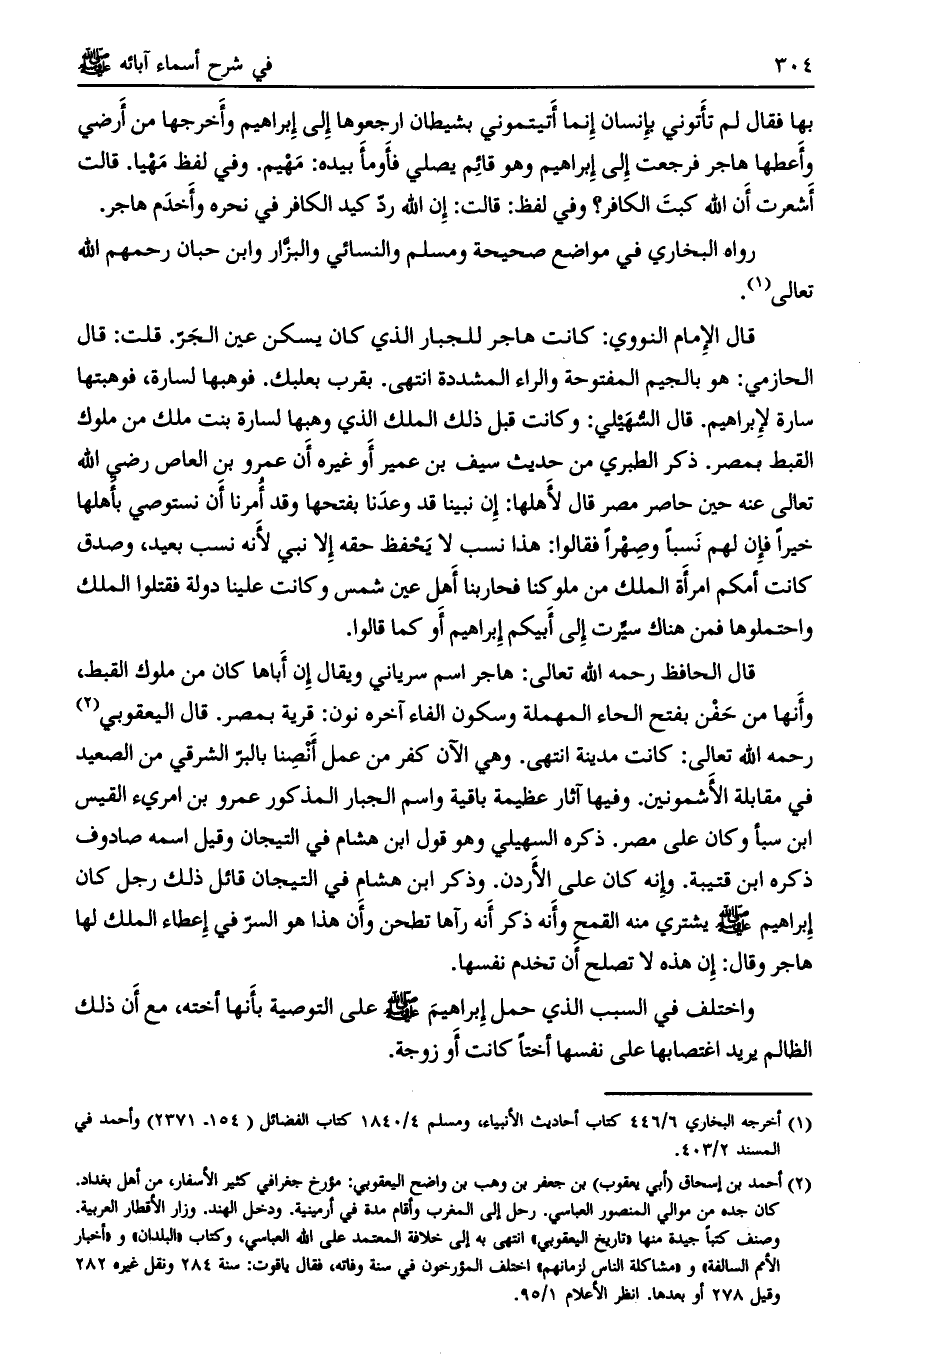 ٣٠٤
في شرح أسماء آبائه ﷺ
بها فقال لم تأتوني بإنسان إنما أتيتموني بشيطان ارجعوها إلى إبراهيم وأخرجها من أرضي
وأعطها هاجر فرجعت إلى إبراهيم وهو قائم يصلي فأومأ بيده: مَهْيم. وفي لفظ مَهْيا. قالت
أشعرت أن الله كبتَ الكافر؟ وفي لفظ: قالت: إن الله ردّ كيد الكافر في نحره وأخدَم هاجر.
رواه البخاري في مواضع صحيحة ومسلم والنسائي والبزَّار وابن حبان رحمهم الله
تعالى(١).
قال الإمام النووي: كانت هاجر للجبار الذي كان يسكن عين الجَرّ. قلت: قال
الحازمي: هو بالجيم المفتوحة والراء المشددة انتهى. بقرب بعلبك. فوهبها لسارة، فوهبتها
سارة لإبراهيم. قال السُّهَيْلي: وكانت قبل ذلك الملك الذي وهبها لسارة بنت ملك من ملوك
القبط بمصر. ذكر الطبري من حديث سيف بن عمير أو غيره أن عمرو بن العاص رضي الله
تعالى عنه حين حاصر مصر قال لأهلها: إن نبينا قد وعدَنا بفتحها وقد أُمرنا أن نستوصي بأهلها
خيراً فإن لهم نَسباً وصِهْراً فقالوا: هذا نسب لا يَحْفظ حقه إلا نبي لأنه نسب بعيد، وصدق
كانت أمكم امرأة الملك من ملوكنا فحاربنا أهل عين شمس وكانت علينا دولة فقتلوا الملك
واحتملوها فمن هناك سيِّرت إلى أبيكم إبراهيم أو كما قالوا.
قال الحافظ رحمه الله تعالى: هاجر اسم سرياني ويقال إن أباها كان من ملوك القبط،
وأنها من حَفْن بفتح الحاء المهملة وسكون الفاء آخره نون: قرية بمصر. قال اليعقوبي(٢)
رحمه الله تعالى: كانت مدينة انتهى. وهي الآن كفر من عمل أَنْصِنا بالبرّ الشرقي من الصعيد
في مقابلة الأشمونين. وفيها آثار عظيمة باقية واسم الجبار المذكور عمرو بن امريء القيس
ابن سبأ وكان على مصر. ذكره السهيلي وهو قول ابن هشام في التيجان وقيل اسمه صادوف
ذكره ابن قتيبة. وإنه كان على الأردن. وذكر ابن هشام في التيجان قائل ذلك رجل كان
إبراهيم ﷺ يشتري منه القمح وأنه ذكر أنه رآها تطحن وأن هذا هو السرّ في إعطاء الملك لها
هاجر وقال: إن هذه لا تصلح أن تخدم نفسها.
واختلف في السبب الذي حمل إبراهيمَ ﷺ على التوصية بأنها أخته، مع أن ذلك
الظالم يريد اغتصابها على نفسها أختاً كانت أو زوجة.
(١) أخرجه البخاري ٤٤٦/٦ كتاب أحاديث الأنبياء، ومسلم ١٨٤٠/٤ كتاب الفضائل (١٥٤ـ ٢٣٧١) وأحمد في
المسند ٤٠٣/٢.
(٢) أحمد بن إسحاق (أبي يعقوب) بن جعفر بن وهب بن واضح اليعقوبي: مؤرخ جغرافي كثير الأسفار، من أهل بغداد.
كان جده من موالي المنصور العباسي. رحل إلى المغرب وأقام مدة في أرمينية. ودخل الهند. وزار الأقطار العربية.
وصنف كتباً جيدة منها «تاريخ اليعقوبي» انتهى به إلى خلافة المعتمد على الله العباسي، وكتاب «البلدان» و «أخبار
الأمم السالفة» و «مشاكلة الناس لزمانهم» اختلف المؤرخون في سنة وفاته، فقال ياقوت: سنة ٢٨٤ ونقل غيره ٢٨٢
وقيل ٢٧٨ أو بعدها. انظر الأعلام ٩٥/١.